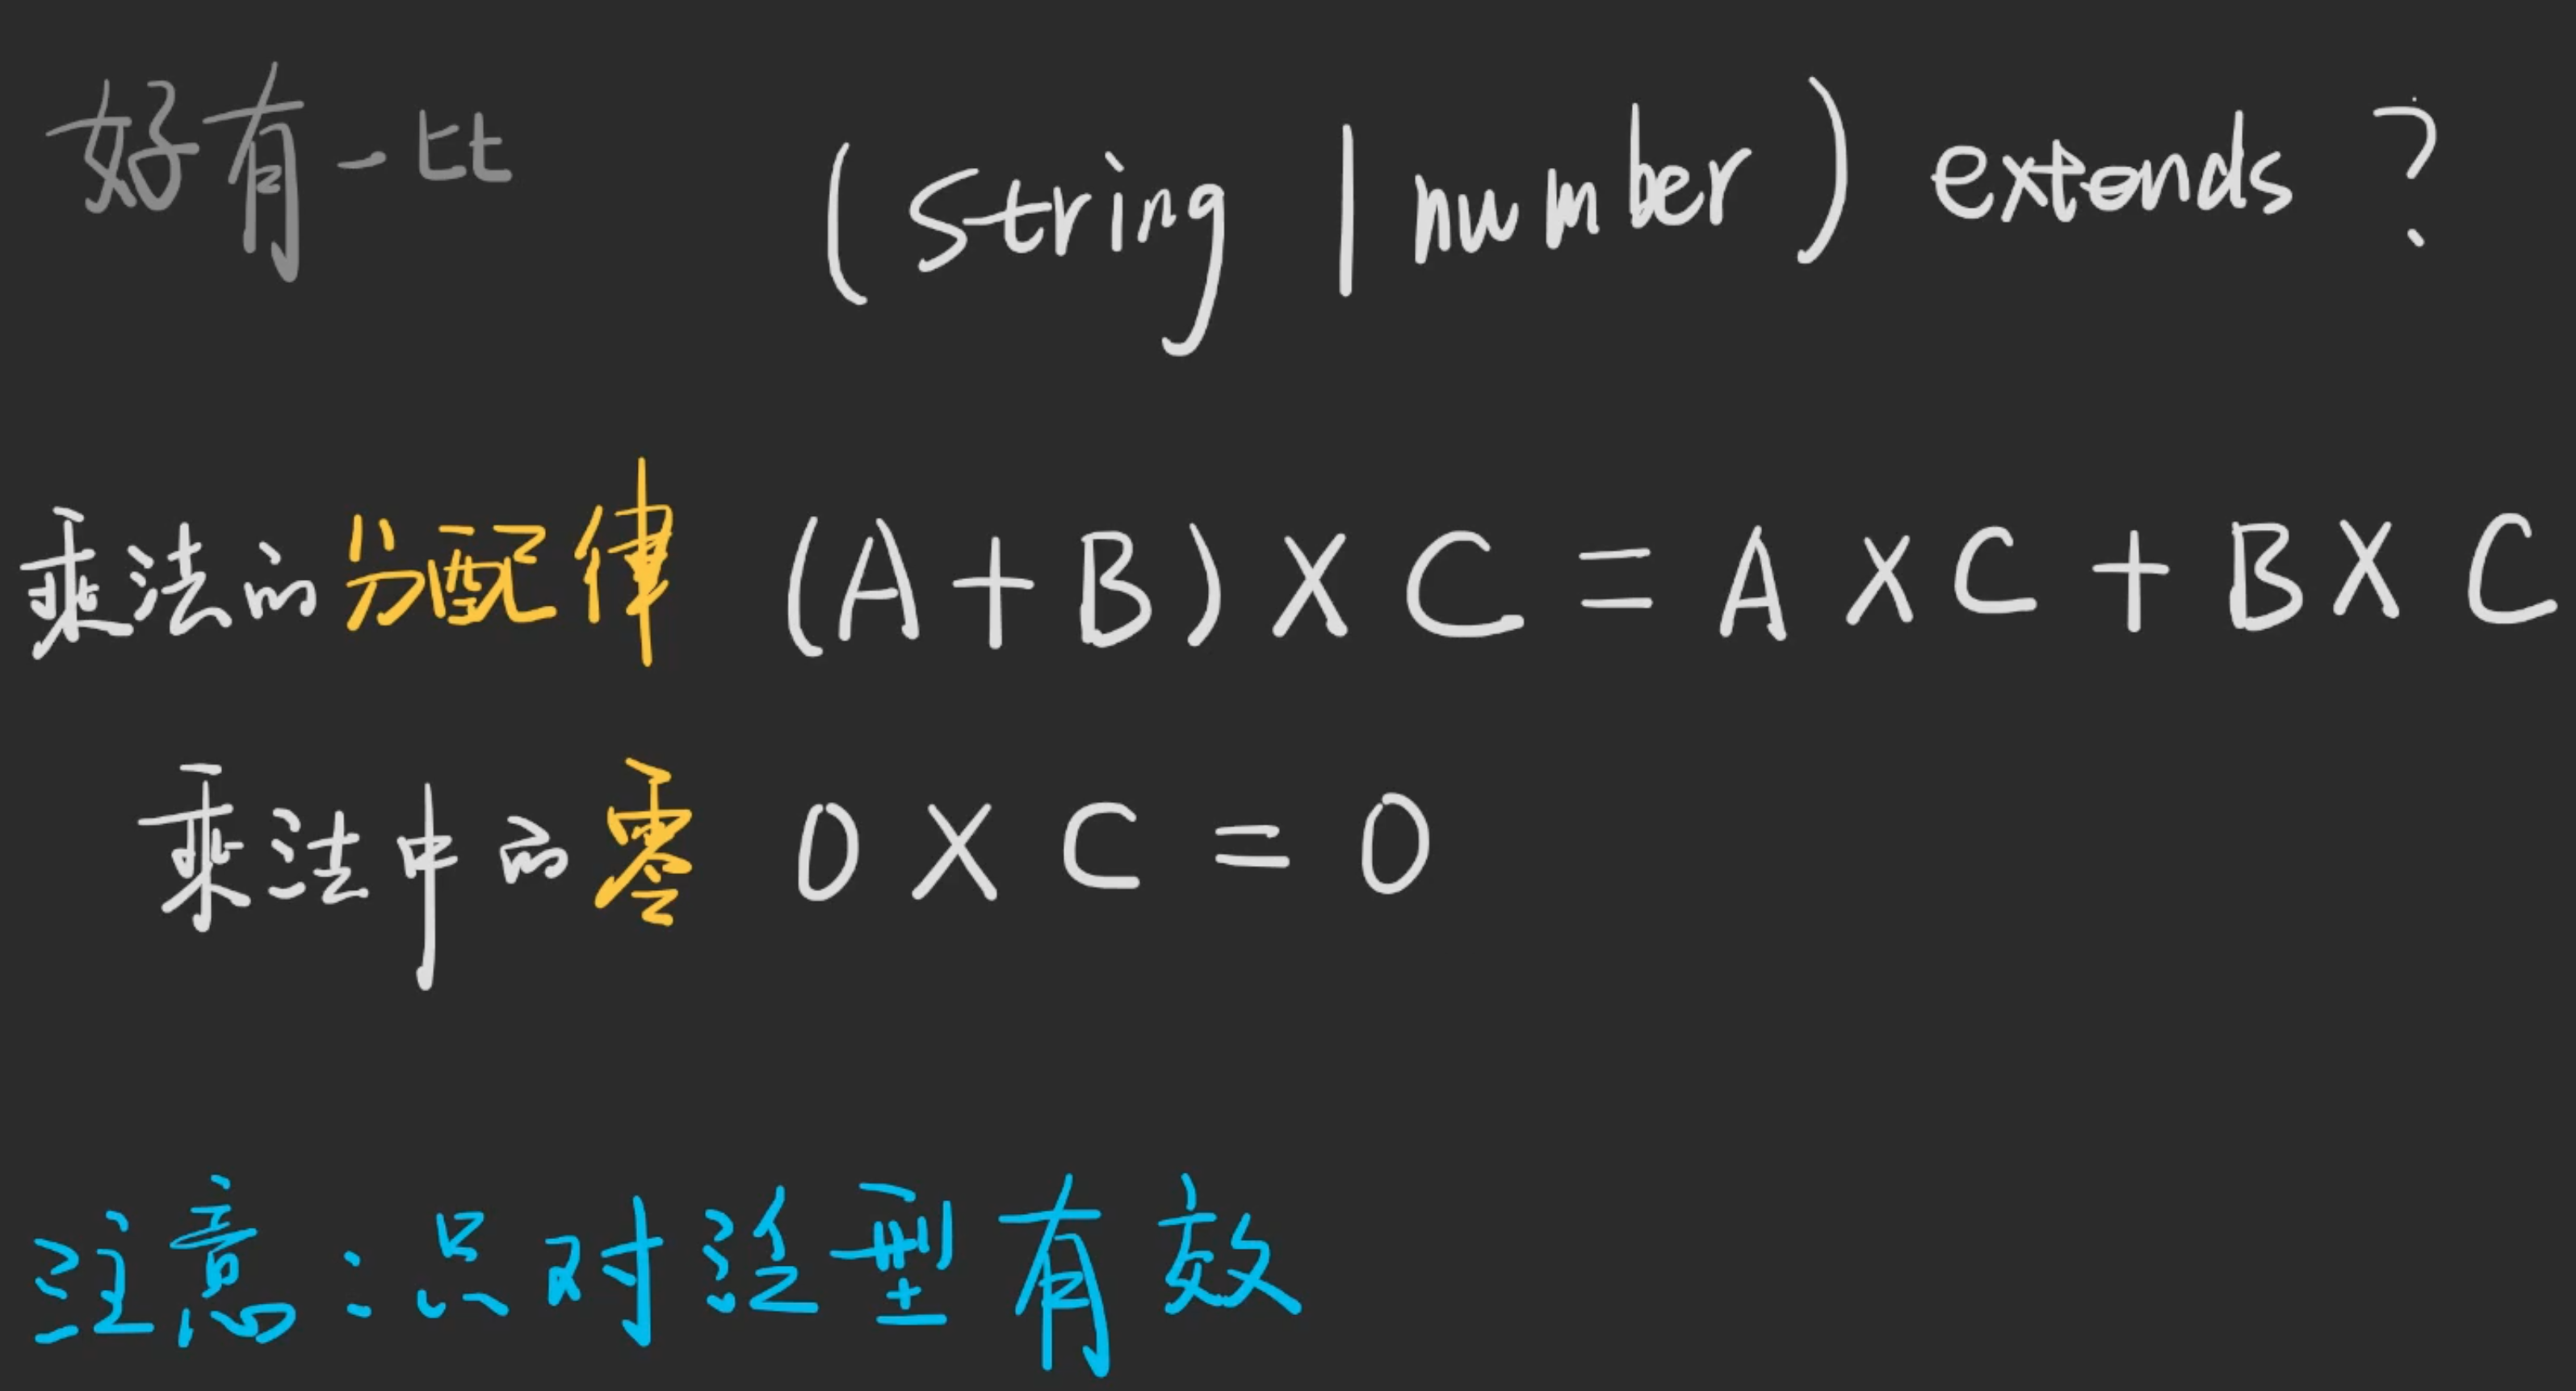 好有一比
(string | number) extends ?
乘法的分配律 (A+B)×C=A×C+B×C
乘法中的零 0×C=0
注意:只对泛型有效